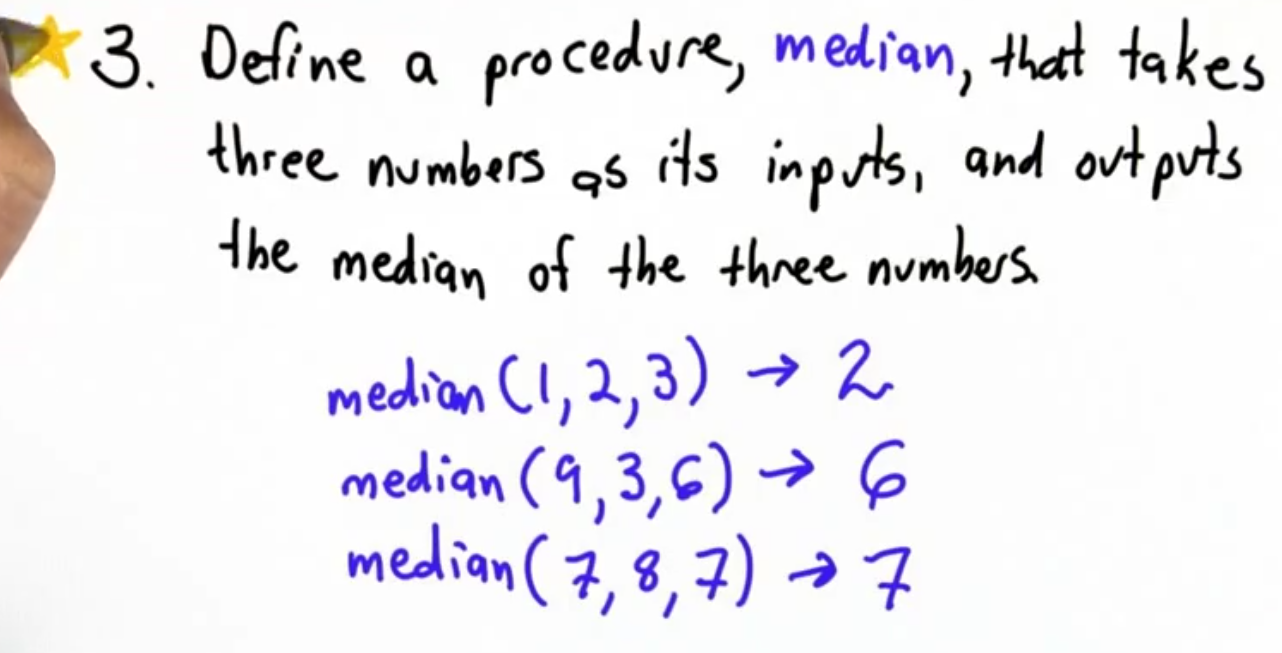 3. Define a procedure, median, that takes
three numbers as its inputs, and outputs
the median of the three numbers.
median (1,2,3) → 2
median (9,3,6) → 6
median (7,8,7) → 7